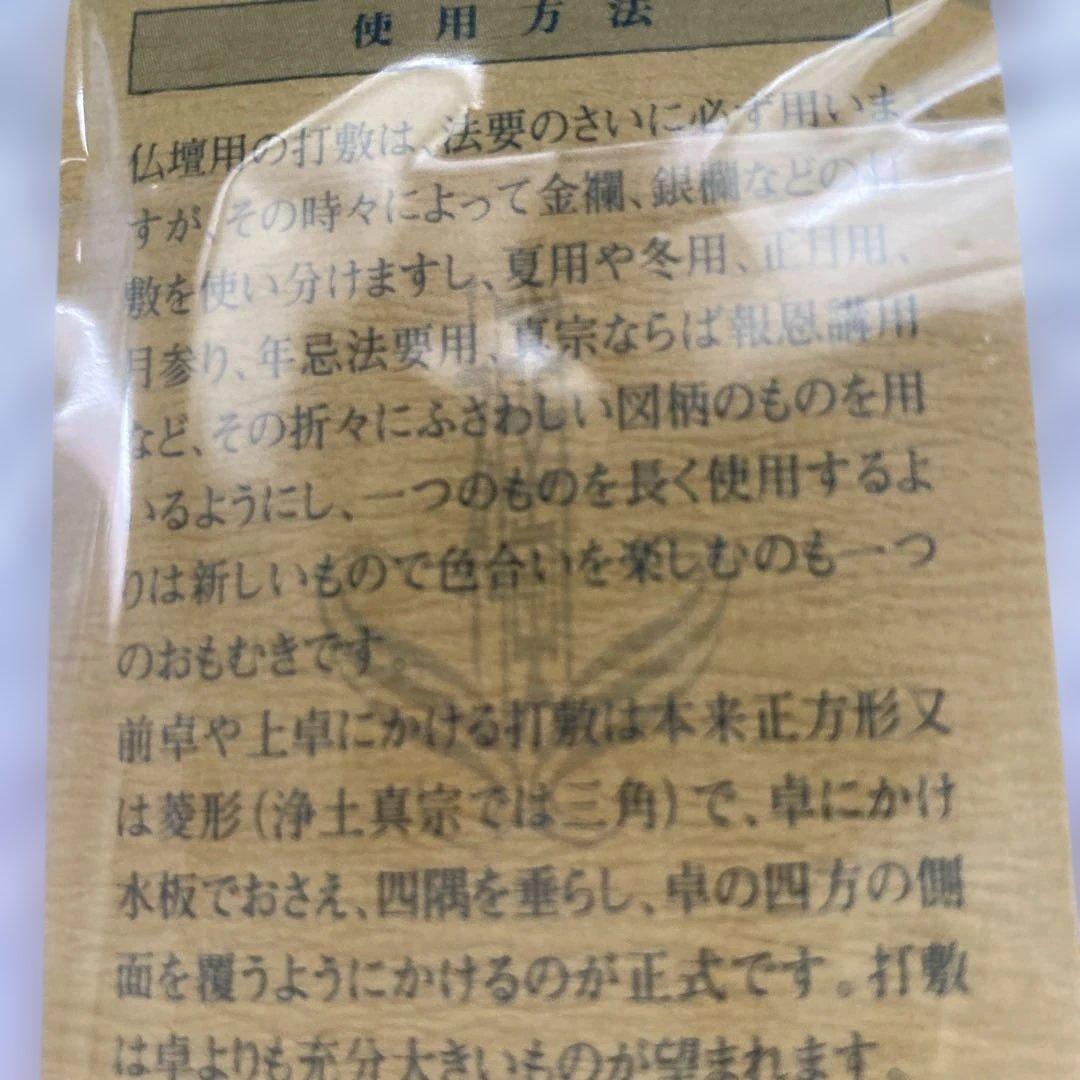 使用方法
仏壇用の打敷は、法要のさいに必ず用いま
すが、その時々によって金襴、銀襴などの打
敷を使い分けますし、夏用や冬用、正月用、
月参り、年忌法要用、真宗ならば報恩講用
など、その折々にふさわしい図柄のものを用
いるようにし、一つのものを長く使用するよ
りは新しいもので色合いを楽しむのも一つ
のおもむきです。
前卓や上卓にかける打敷は本来正方形又
は菱形(浄土真宗では三角)で、卓にかけ
水板でおさえ、四隅を垂らし、卓の四方の側
面を覆うようにかけるのが正式です。打敷
は卓よりも充分大きいものが望まれます。